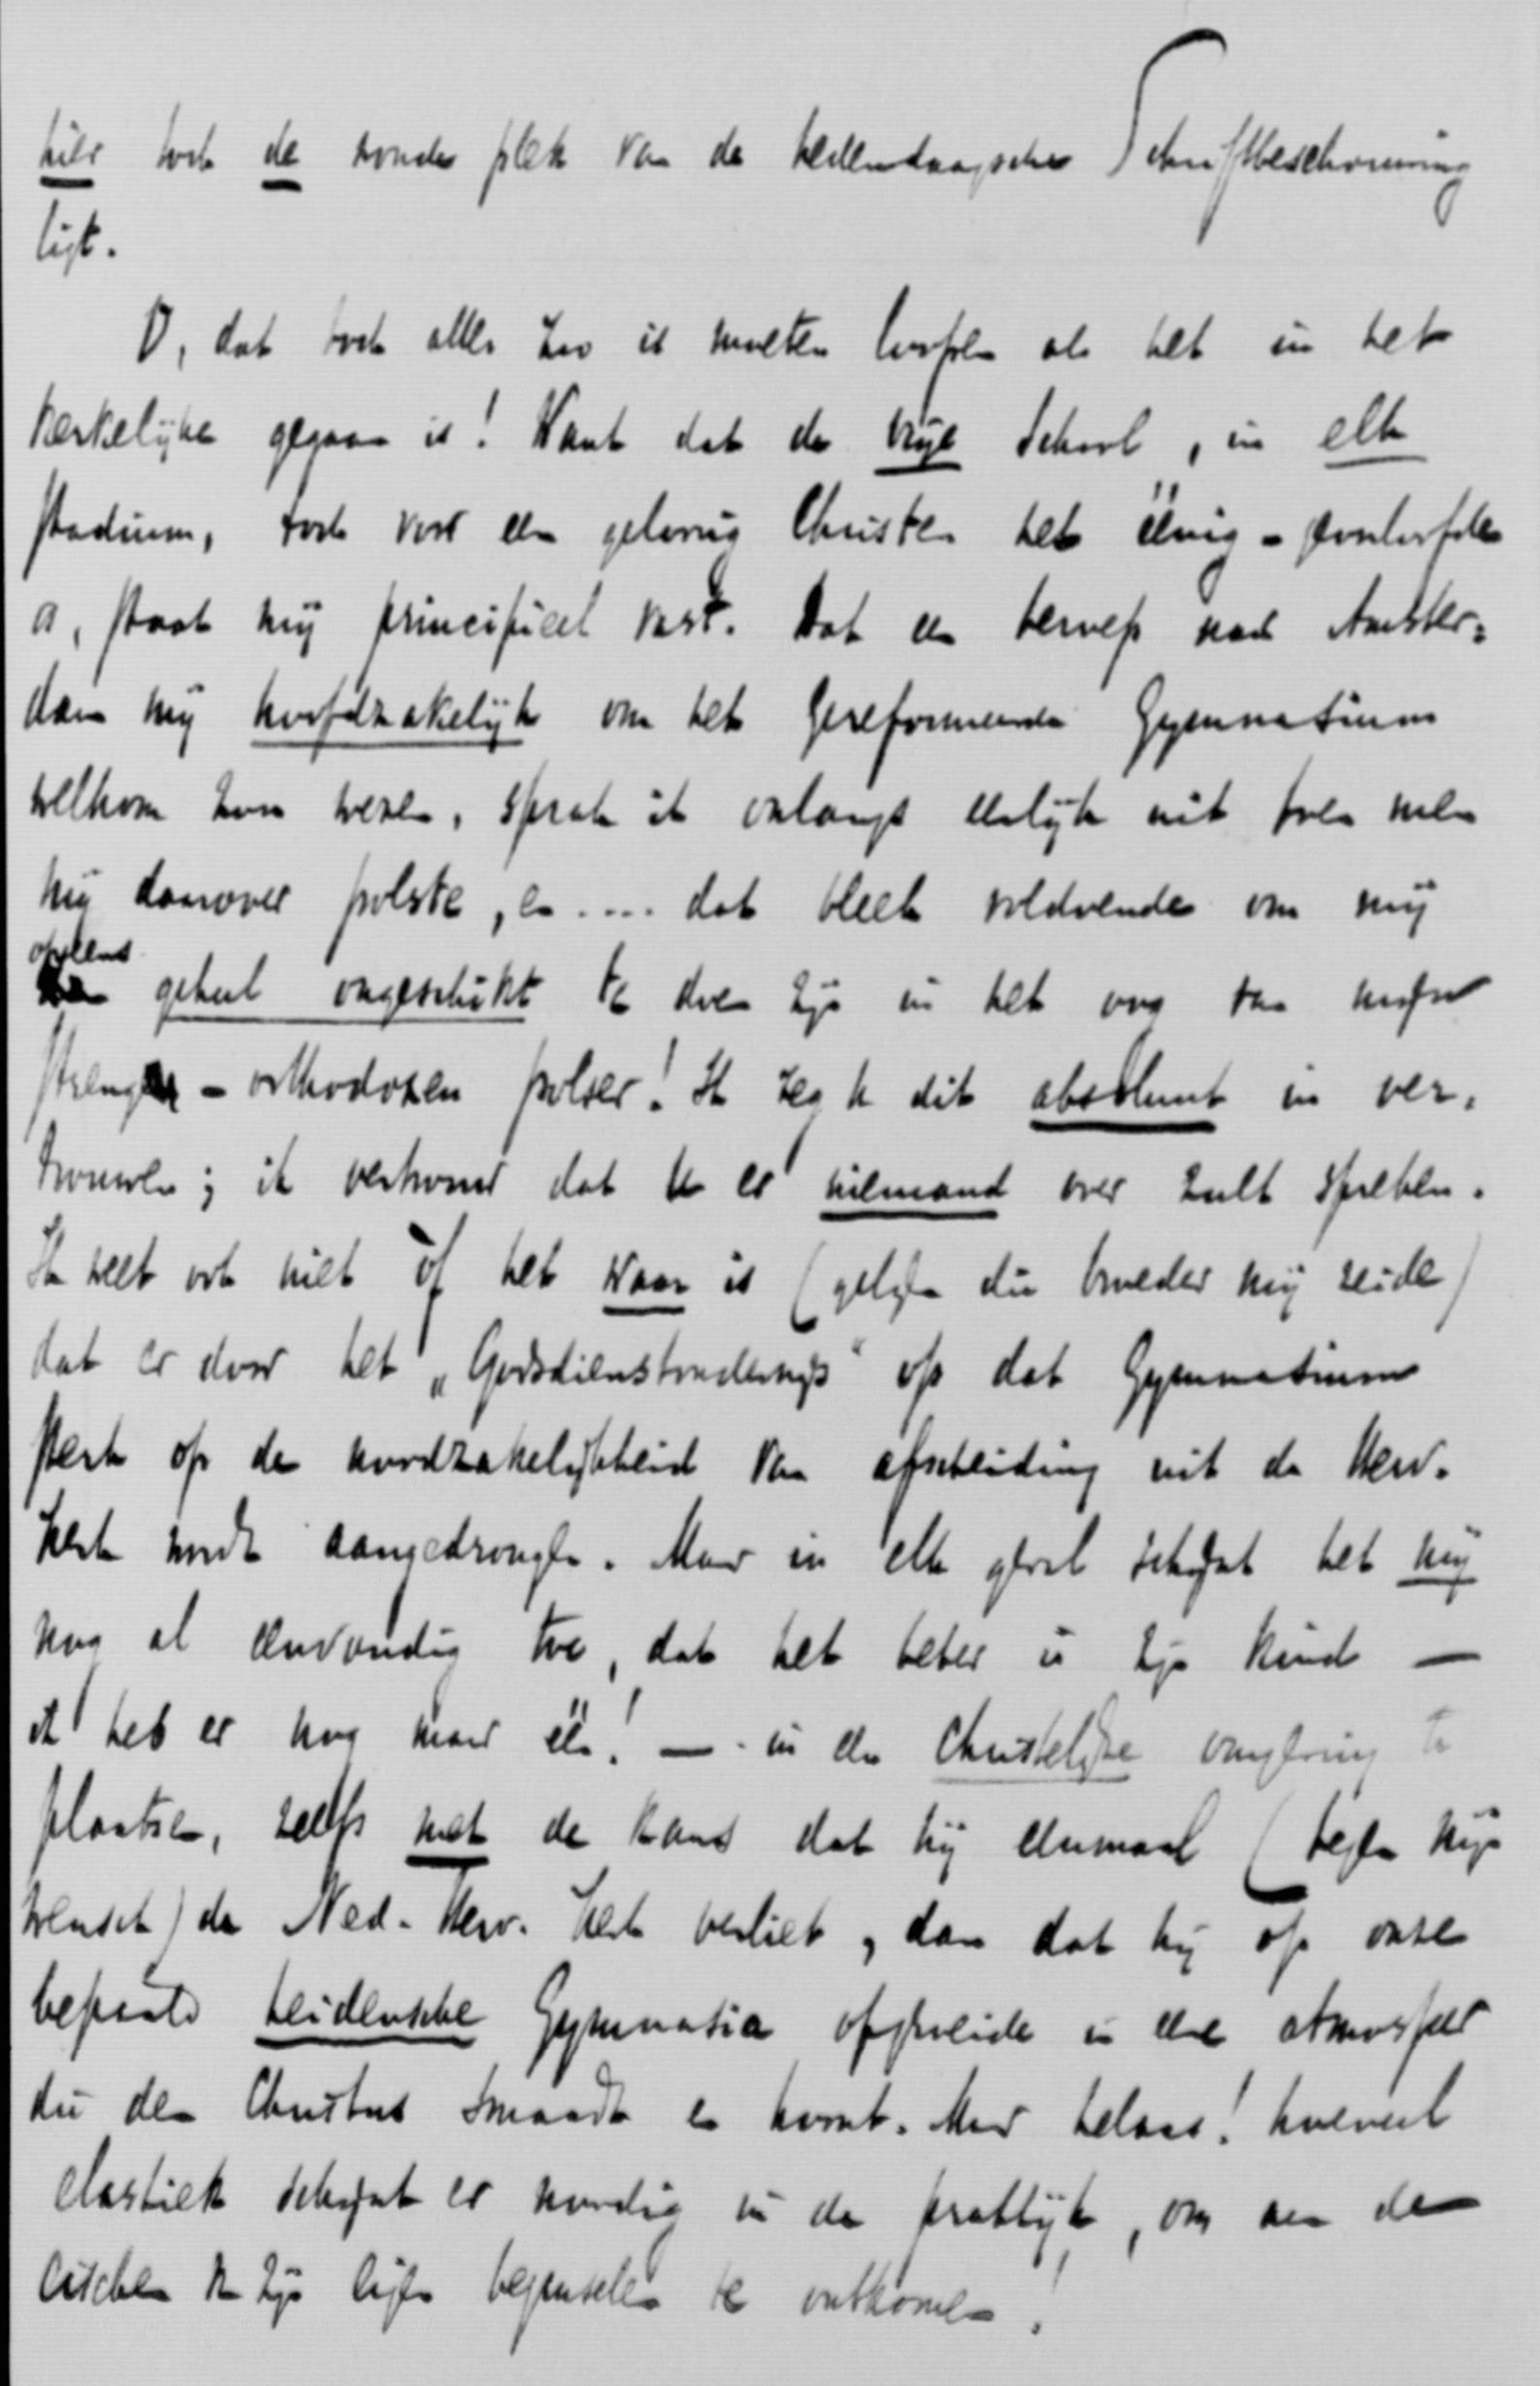 hier toch de wonde plek van de hedendaagsche Schriftbeschouwing
ligt.
O, dat toch alles zoo is moeten loopen als het in het
kerkelijke gegaan is! Want dat de vrije School, in elk
stadium, toch voor een geloovig Christen het éénig-geoorloofde
is, staat mij principieel vast. Dat een beroep naar Amster-
dam mij hoofdzakelijk om het Gereformeerde Gymnasium
welkom zou wezen, sprak ik onlangs eerlijk uit toen men
mij daarover polste, en .... dat bleek voldoende om mij
opeens geheel ongeschikt te doen zijn in het oog van mijn
strengen-orthodoxen polser! Ik zeg U dit absoluut in ver-
trouwen; ik vertrouw dat U er niemand over zult spreken.
Ik weet ook niet of het waar is (gelijk die broeder mij zeide)
dat er door het „Godsdienstonderwijs" op dat Gymnasium
sterk op de noodzakelijkheid van afscheiding uit de Herv.
kerk wordt aangedrongen. Maar in elk geval schijnt het mij
nog al eenvoudig toe, dat het beter is zijn kind —
ik heb er nog maar één! — in een Christelijke omgeving te
plaatsen, zelfs met de kans dat hij eenmaal (tegen mijn
wensch) de Ned. Herv. kerk verliet, dan dat hij op onze
bepaald heidensche Gymnasia opgroeide in eene atmosfeer
die den Christus smaadt en hoont. Maar helaas! hoeveel
elastiek schijnt er noodig in de praktijk, om aan den
eischen van zijn eigen beginselen te ontkomen!